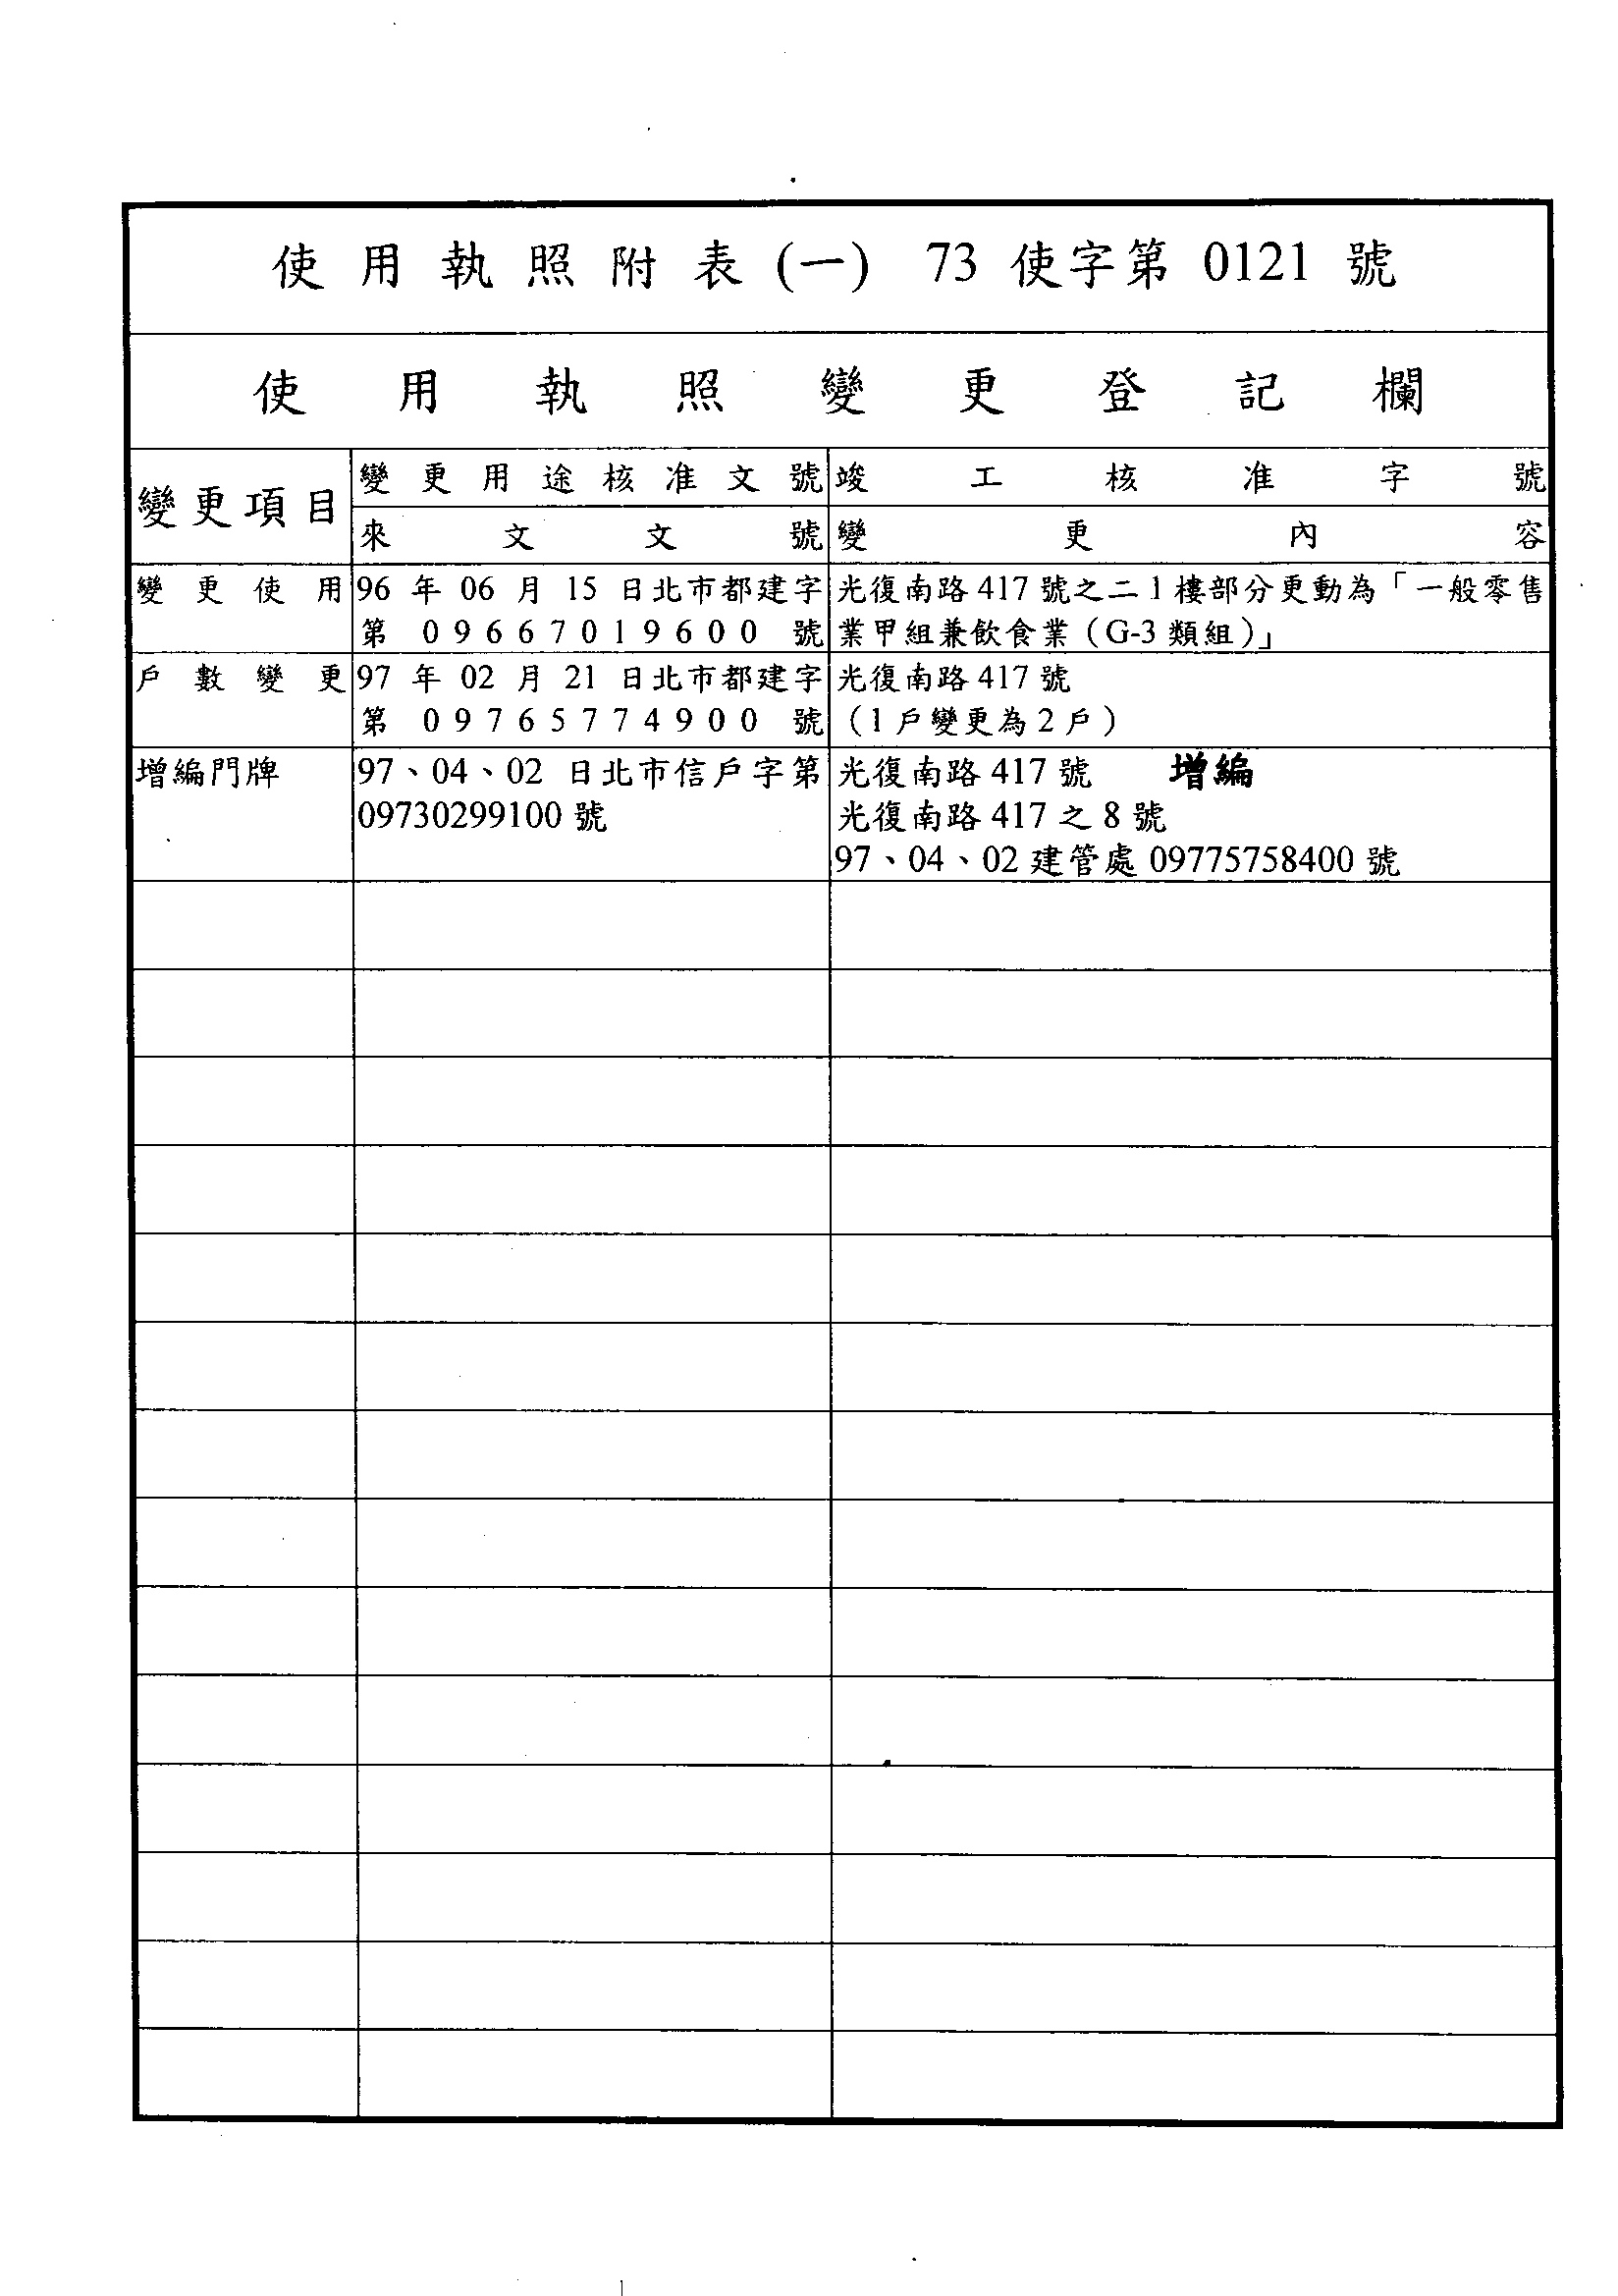 使用執照附表(一) 73使字第0121號
使用執照變更登記欄
變更項目
變更用途核准文號
竣工核准字號
來文文號
變更內容
變更使用
96年06月15日北市都建字
第09667019600號
光復南路417號之二1樓部分更動為「一般零售
業甲組兼飲食業（G-3類組）」
戶數變更
97年02月21日北市都建字
第09765774900號
光復南路417號
（1戶變更為2戶）
增編門牌
97、04、02日北市信戶字第
09730299100號
光復南路417號 增編
光復南路417之8號
97、04、02建管處09775758400號